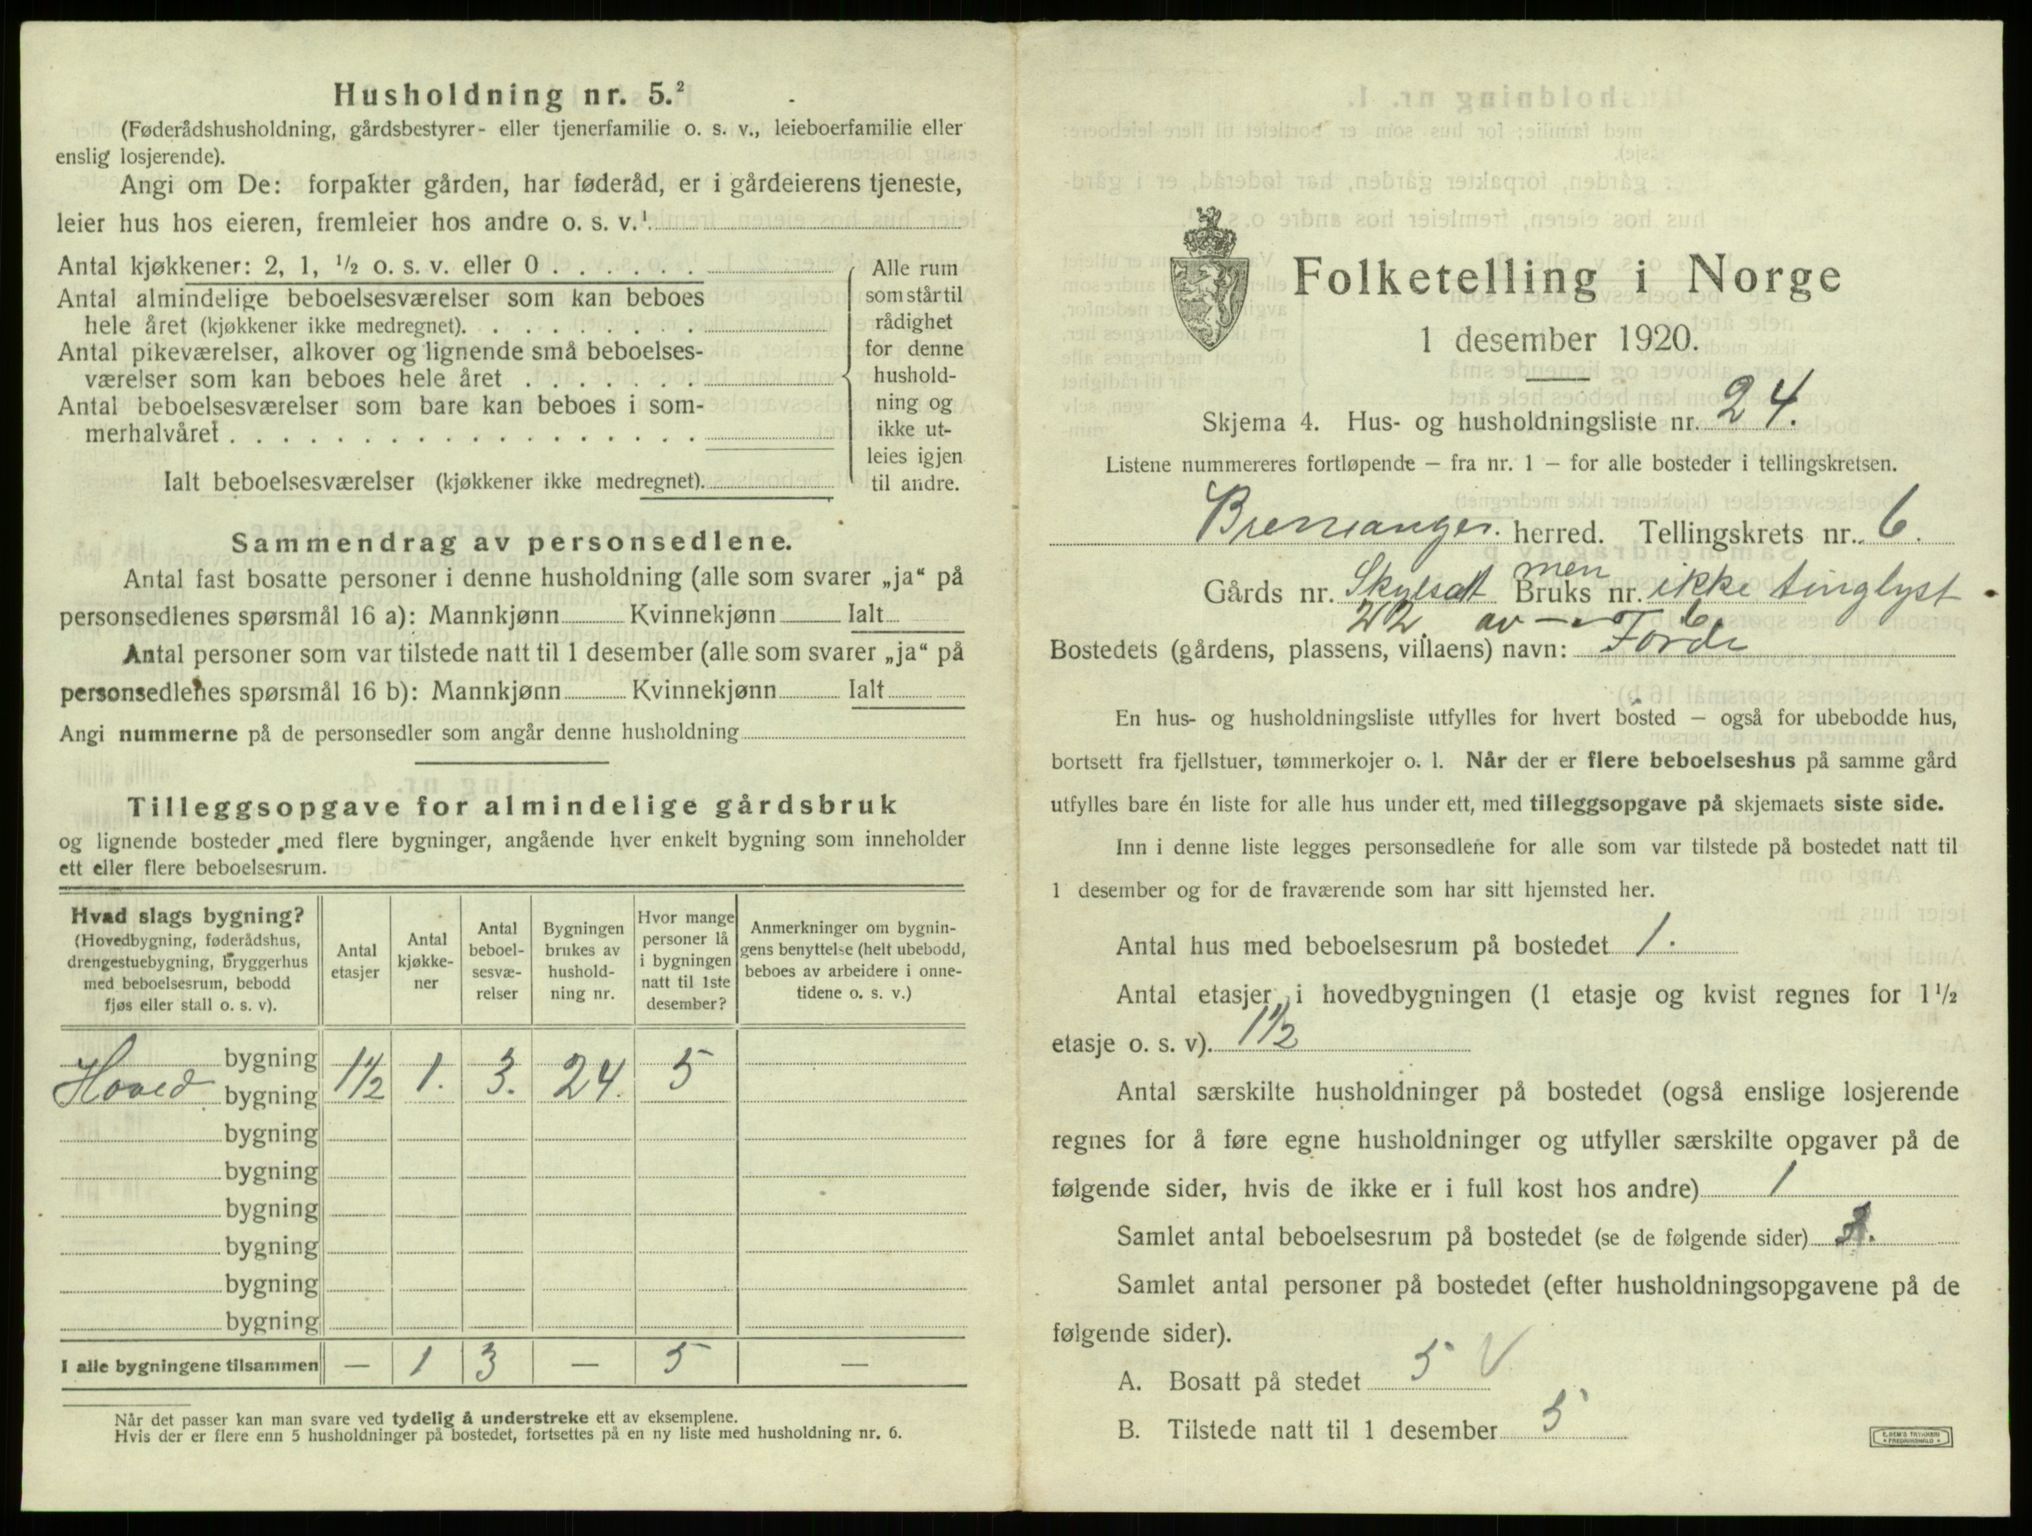 Husholdning nr. 5.²
(Føderådshusholdning, gårdsbestyrer- eller tjenerfamilie o. s. v., leieboerfamilie eller
enslig losjerende).
Angi om De: forpakter gården, har føderåd, er i gårdeierens tjeneste,
leier hus hos eieren, fremleier hos andre o. s. v.¹
Antal kjøkkener: 2, 1, ½ o. s. v. eller 0
Antal almindelige beboelsesværelser som kan beboes
hele året (kjøkkener ikke medregnet).
Antal pikeværelser, alkover og lignende små beboelses-
værelser som kan beboes hele året
Antal beboelsesværelser som bare kan beboes i som-
merhalvåret
Ialt beboelsesværelser (kjøkkener ikke medregnet).
Alle rum
som står til
rådighet
for denne
hushold-
ning og
ikke ut-
leies igjen
til andre.
Sammendrag av personsedlene.
Antal fast bosatte personer i denne husholdning (alle som svarer „ja“ på
personsedlenes spørsmål 16 a): Mannkjønn Kvinnekjønn Ialt
Antal personer som var tilstede natt til 1 desember (alle som svarer „ja“ på
personsedlenes spørsmål 16 b): Mannkjønn Kvinnekjønn Ialt
Angi nummerne på de personsedler som angår denne husholdning
Tilleggsopgave for almindelige gårdsbruk
og lignende bosteder med flere bygninger, angående hver enkelt bygning som inneholder
ett eller flere beboelsesrum.
Hvad slags bygning?
(Hovedbygning, føderådshus,
drengestuebygning, bryggerhus
med beboelsesrum, bebodd
fjøs eller stall o. s. v).
Antal
etasjer
Antal
kjøkke-
ner
Antal
beboel-
sesvæ-
relser
Bygningen
brukes av
hushold-
ning nr.
Hvor mange
personer lå
i bygningen
natt til 1ste
desember?
Anmerkninger om bygnin-
gens benyttelse (helt ubebodd,
beboes av arbeidere i onne-
tidene o. s. v.)
bygning
Hoved bygning 1½ 1. 3. 24. 5
bygning
bygning
bygning
bygning
bygning
bygning
I alle bygningene tilsammen — 1 3 — 5 —
Når det passer kan man svare ved tydelig å understreke ett av eksemplene.
Hvis der er flere enn 5 husholdninger på bostedet, fortsettes på en ny liste med husholdning nr. 6.
Folketelling i Norge
1 desember 1920.
Skjema 4. Hus- og husholdningsliste nr. 24.
Listene nummereres fortløpende – fra nr. 1 – for alle bosteder i tellingskretsen.
Bremanger. herred. Tellingskrets nr. 6.
Gårds nr. Skylsatt men Bruks nr. ikke tinglyst
22. av — 6
Bostedets (gårdens, plassens, villaens) navn: Förde
En hus- og husholdningsliste utfylles for hvert bosted – også for ubebodde hus,
bortsett fra fjellstuer, tømmerkojer o. l. Når der er flere beboelseshus på samme gård
utfylles bare én liste for alle hus under ett, med tilleggsopgave på skjemaets siste side.
Inn i denne liste legges personsedlene for alle som var tilstede på bostedet natt til
1 desember og for de fraværende som har sitt hjemsted her.
Antal hus med beboelsesrum på bostedet 1.
Antal etasjer i hovedbygningen (1 etasje og kvist regnes for 1½
etasje o. s. v). 1½
Antal særskilte husholdninger på bostedet (også enslige losjerende
regnes for å føre egne husholdninger og utfyller særskilte opgaver på de
følgende sider, hvis de ikke er i full kost hos andre) 1
Samlet antal beboelsesrum på bostedet (se de følgende sider)
Samlet antal personer på bostedet (efter husholdningsopgavene på de
følgende sider).
A. Bosatt på stedet 5 V
B. Tilstede natt til 1 desember 5